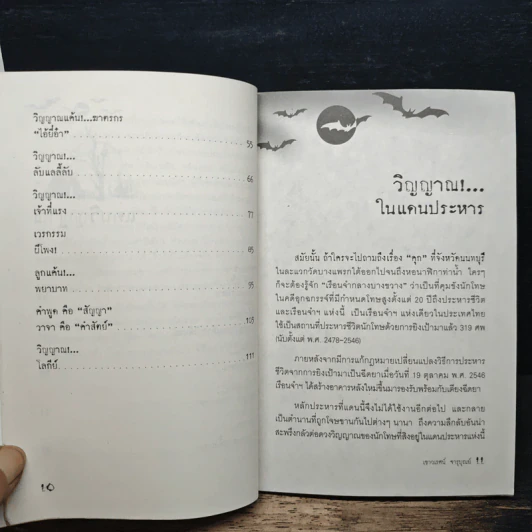 วิญญาณแค้น!...ฆาตรกร
"ไอ้ยี่อำ" 55
วิญญาณ!...
ลับแลลี้ลับ 66
วิญญาณ!...
เจ้าที่แรง 77
เวรกรรม
ผีโพง! 85
ลูกแค้น!...
พยาบาท 95
คำพูด คือ "สัญญา"
วาจา คือ "คำสัตย์" 103
วิญญาณ!...
โลกีย์ 111
10
วิญญาณ!...
ในแดนประหาร
สมัยนั้น ถ้าใครจะไปถามถึงเรื่อง "คุก" ที่จังหวัดนนทบุรี
ในละแวกวัดบางแพรกใต้ออกไปจนถึงหอนาฬิกาท่าน้ำ ใครๆ
ก็จะต้องรู้จัก "เรือนจำกลางบางขวาง" ว่าเป็นที่คุมขังนักโทษ
ในคดีอุกฉกรรจ์ที่มีกำหนดโทษสูงตั้งแต่ 20 ปีถึงประหารชีวิต
และเรือนจำฯ แห่งนี้ เป็นเรือนจำฯ แห่งเดียวในประเทศไทย
ใช้เป็นสถานที่ประหารชีวิตนักโทษด้วยการยิงเป้ามาแล้ว 319 ศพ
(นับตั้งแต่ พ.ศ. 2478-2546)
ภายหลังจากมีการแก้กฎหมายเปลี่ยนแปลงวิธีการประหาร
ชีวิตจากการยิงเป้ามาเป็นฉีดยาเมื่อวันที่ 19 ตุลาคม พ.ศ. 2546
เรือนจำฯ ได้สร้างอาคารหลังใหม่ขึ้นมารองรับพร้อมกับเตียงฉีดยา
หลักประหารที่แดนนี้จึงไม่ได้ใช้งานอีกต่อไป และกลาย
เป็นตำนานที่ถูกโจษขานกันไปต่างๆ นานา ถึงความลึกลับอันน่า
สะพรึงกลัวต่อดวงวิญญาณของนักโทษที่สิงอยู่ในแดนประหารแห่งนี้
เชาวเรศน์ จารุบุณย์ 11